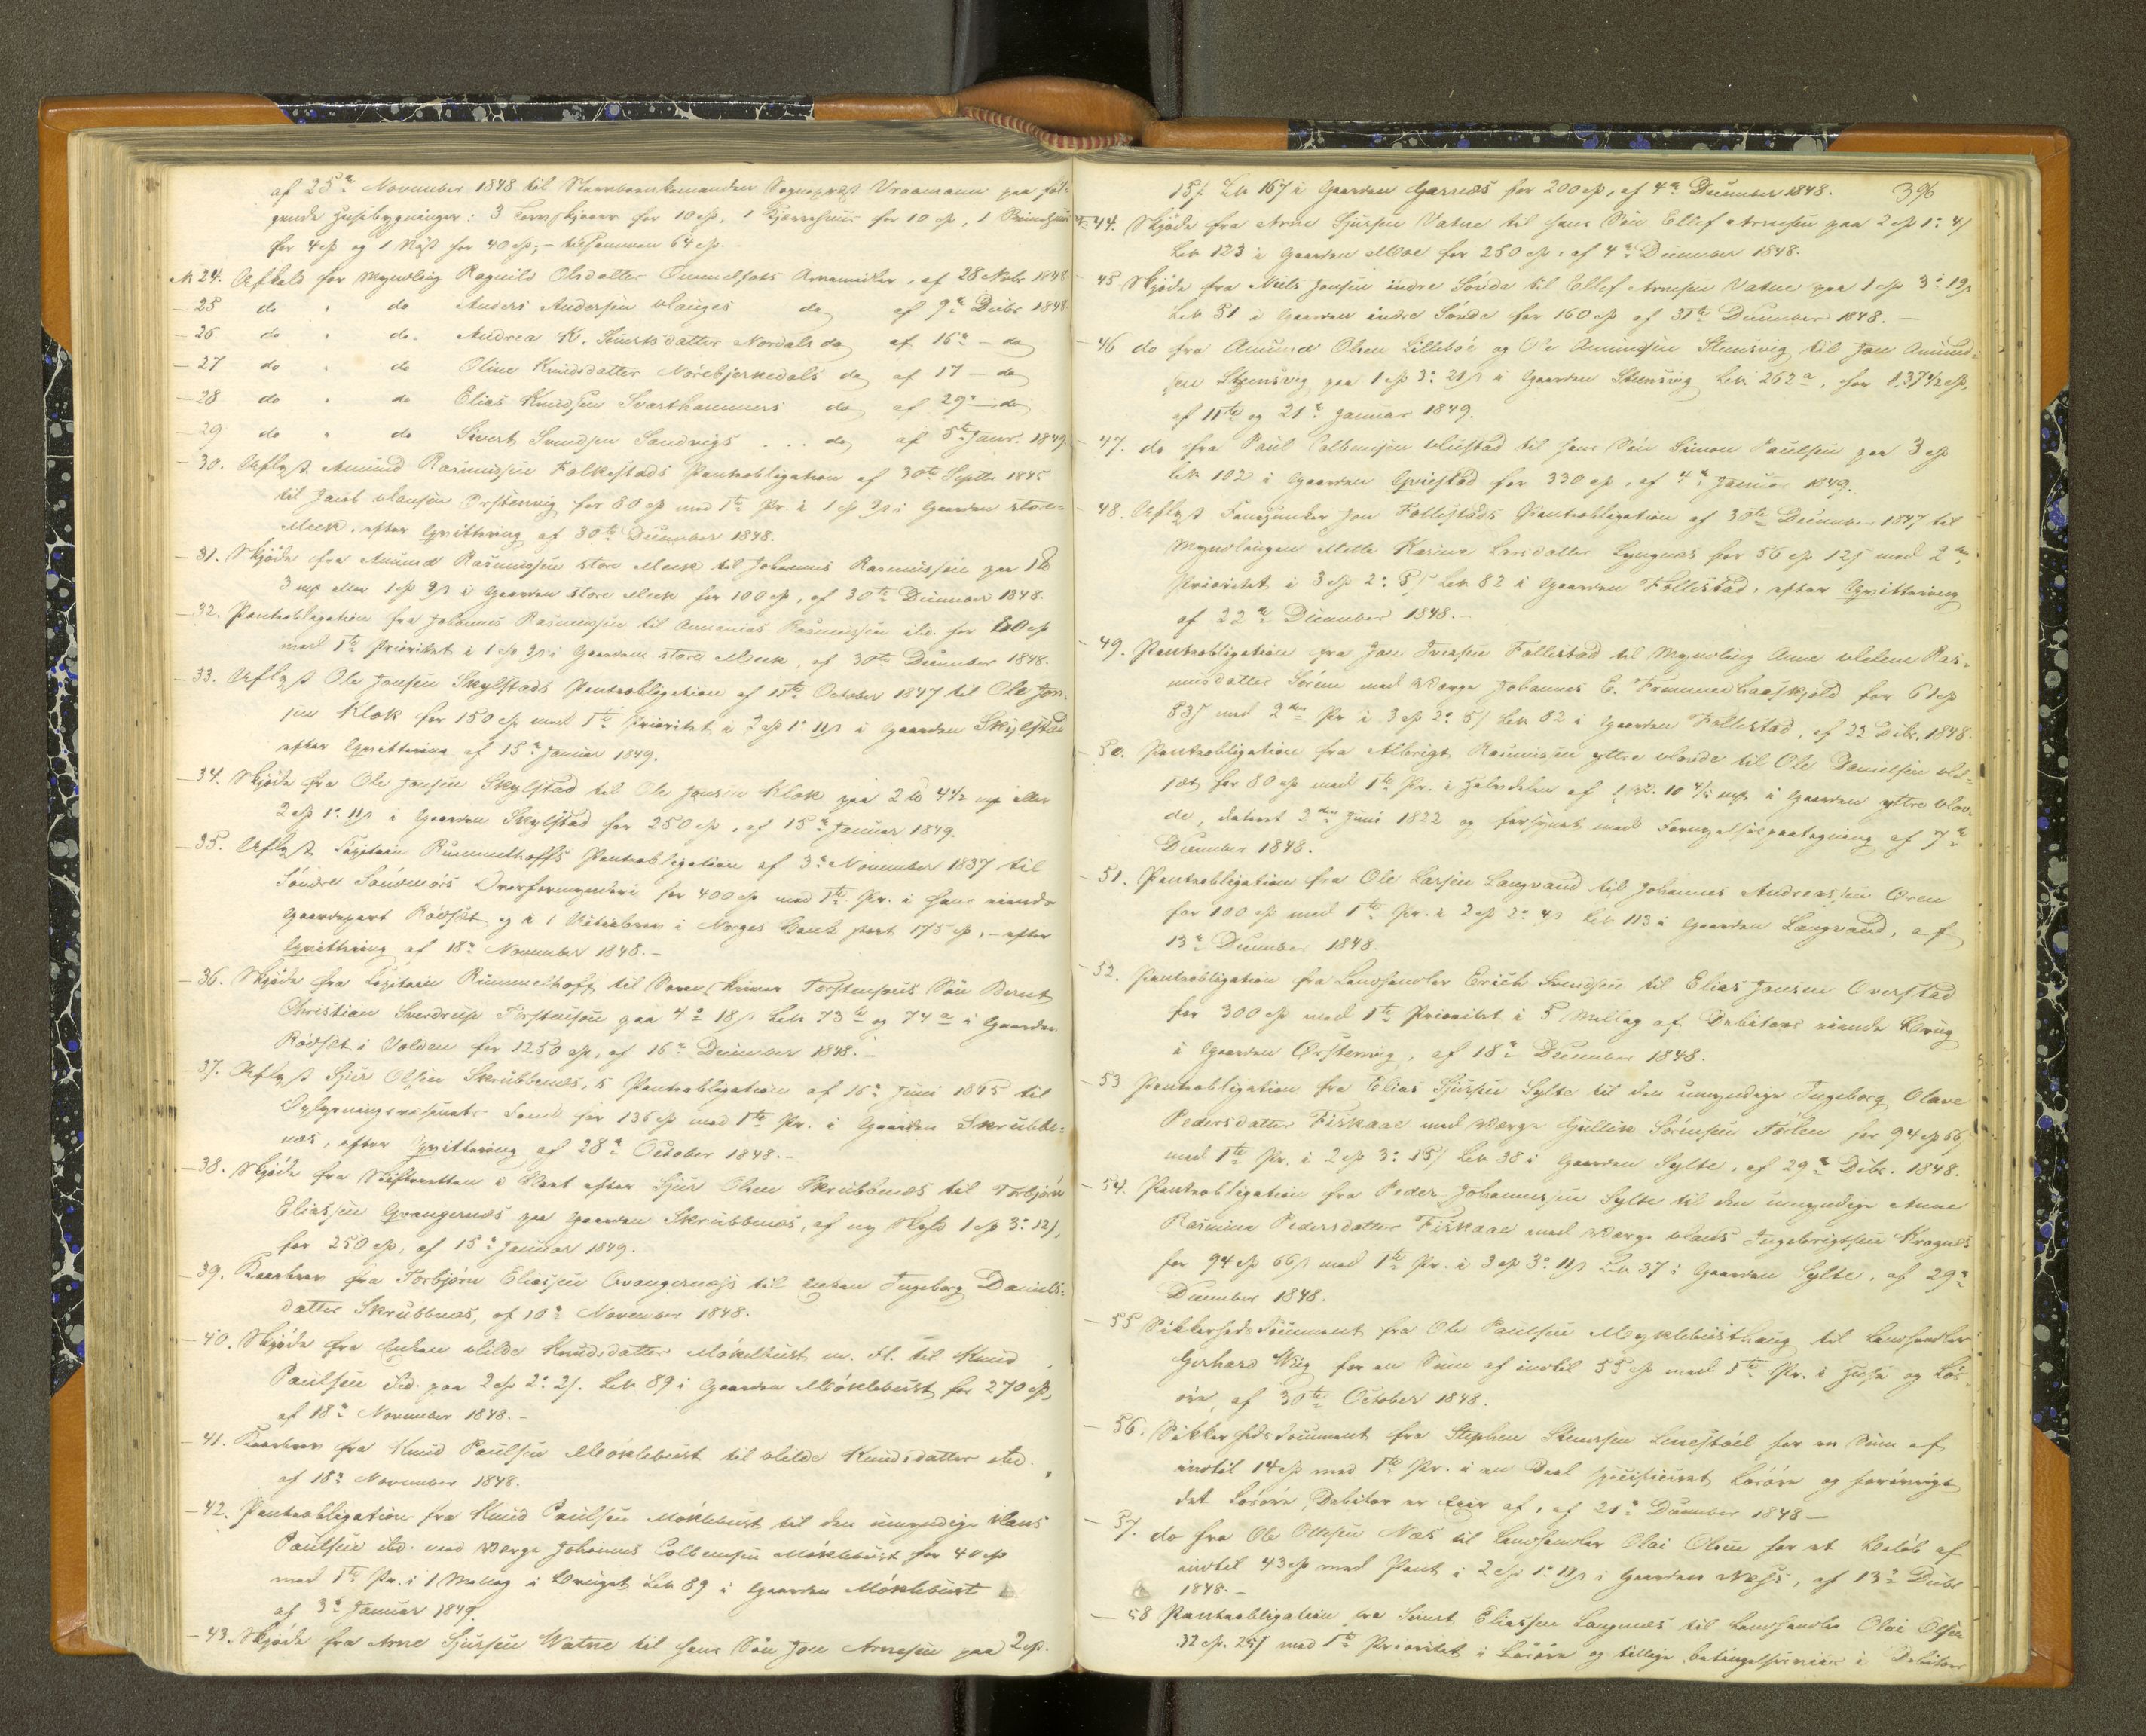 af 25de November 1848 til Sognepræst Vraamann paa føl-
gende Huusbygninger: 3 for 10 Spd, 1 for 10 Spd, 1
for 4 Spd og 1 Nøst for 40 Spd; - tilsammen 64 Spd. -
N 24. Afkald for Myndling Ragnild Olsdatter Arvemidler, af 28 Novbr 1848.
- 25 do " do Anders Andersen Hauges do af 9de Decbr 1848
- 26 do " do. Andrea K. Sivertsdatter Nordals do af 16de - do
- 27 do " do Oline Knudsdatter Nørebjerkedals do af 17 - do
- 28 do " do Elias Knudsen Svarthammers do af 29de - do
- 29 do " do Sivert Svendsen Sandvigs ... do af 5te Janr. 1849.
- 30. Aflyst Amund Rasmussen Folkestads Panteobligation af 30te Septbr 1845
til Jacob Hansen Ørstenvig for 80 Spd med 1te Pr. i 1 Spd i Gaarden store
Meek, efter Qvittering af 30te December 1848.
- 31. Skjøde fra Amund Rasmussen store Meek til Johannes Rasmussen paa
3 mp eller 1 Spd i Gaarden store Meek for 100 Spd, af 30te December 1848.
- 32. Pantobligation fra Johannes Rasmussen til Ananias Rasmussen ibd. for 60 Spd
med 1te Prioritet i 1 Spd i Gaarden store Meek, af 30te December 1848.
- 33. Aflyst Ole Jonsen Skylstads Pantobligation af 11te October 1847 til Ole Jon-
sen Klok for 150 Spd med 1te Prioritet i 2 Spd 1 11 i Gaarden Skylstad
efter Qvittering af 15de Januar 1849.
- 34. Skjøde fra Ole Jonsen Skylstad til Ole Jonsen Klok paa 2 4 1/2 mp eller
2 Spd 1 11 i Gaarden Skylstad for 250 Spd, af 15de Januar 1849.
- 35. Aflyst Capitain Rummelhoffs Pantobligation af 3de November 1837 til
Søndre Søndmørs Overformynderi for 400 Spd med 1te Pr. i hans eiende
Gaardepart Rødsæt og i 1 Actiebrev i Norges Bank stort 175 Spd, - efter
Qvittering af 18de November 1848. -
- 36. Skjøde fra Capitain Rummelhoff til Torstensons Søn Bernt
Christian Sverdrup Torstenson paa 4 18 Løb 73 og 74 a i Gaarden
Rødsæt i Volden for 1250 Spd, af 16de December 1848. -
- 37. Aflyst Sjur Olsen Skrubbenæs's Pantobligation af 16de Juni 1845 til
Oplysningsvæsenets Fond for 136 Spd med 1te Pr. i Gaarden Skrubbe-
næs, efter Qvittering af 28de October 1848. -
- 38. Skjøde fra Skifteretten i Boet efter Sjur Olsen Skrubbenæs til Torbjørn
Eliassen Qvangernæs paa Gaarden Skrubbenæs, af ny Skyld 1 Spd 3 12,
for 250 Spd, af 15de Januar 1849.
- 39. Kaarbrev fra Torbjørn Eliassen Qvangernæs til Enken Ingeborg Daniels-
datter Skrubbenæs, af 10de November 1848.
- 40. Skjøde fra Enken Hilde Knudsdatter Møklebust m. fl. til Knud
Paulsen ibd. paa 2 Spd 2 2. Løb 89 i Gaarden Møklebust for 270 Spd,
af 18de November 1848. -
- 41. Kaarbrev fra Knud Paulsen Møklebust til Hilde Knudsdatter ibd.
af 18de November 1848.
- 42. Pantobligation fra Knud Paulsen Møklebust til den umyndige Hans
Paulsen ibd. med Værge Johannes Colbensen Møklebust for 40 Spd
med 1te Pr. i 1 Mællag i Bruget Løb 89 i Gaarden Møklebust
af 3de Januar 1849.
- 43. Skjøde fra Arne Sjursen Watne til hans Søn Jon Arnesen paa 2 Spd.
15 Lb 167 i Gaarden Garnæs for 200 Spd, af 4de December 1848. 396
44. Skjøde fra Arne Sjursen Vatne til hans Søn Ellef Arnesen paa 2 Spd 1 4
Løb 123 i Gaarden Moe for 250 Spd, af 4de December 1848.
- 45 Skjøde fra Niels Jonsen indre Sønde til Ellef Arnesen Vatne paa 1 Spd 3 19
Løb 51 i Gaarden indre Sønde for 160 Spd af 31te December 1848. -
- 46 do fra Amund Olsen Lillebøe og Ole Amundsen Stensvig til Jon Amund-
sen Stensvig paa 1 Spd 3 21 i Gaarden Stensvig Løb 262 a, for 137 1/2 Spd,
af 11te og 21de Januar 1849.
- 47. do fra Paul Colbensen Hustad til hans Søn Simon Paulsen paa 3 Spd
Løb 102 i Gaarden Qviestad for 330 Spd, af 4de Januar 1849.
- 48. Aflyst Fanejunker Jon Follestads Pantobligation af 30te December 1847 til
Myndlingen Mette Karine Larsdatter Lyngnæs for 56 Spd 12 med 2den
Prioritet i 3 Spd 2 5 Løb 82 i Gaarden Follestad, efter Qvittering
af 22de December 1848. -
- 49. Pantobligation fra Jon Iversen Follestad til Myndling Anne Helene Ras-
musdatter Sørene med Værge Johannes E. for 61 Spd
83 med 2den Pr i 3 Spd 2 5 Løb 82 i Gaarden Follestad, af 23 Decbr. 1848.
- 50. Pantobligation fra Albrigt Rasmussen yttre Hovde til Ole Danielsen
for 80 Spd med 1te Pr. i Halvdelen af 1 10 4/5 mp i Gaarden yttre Hov-
de, dateret 2den Juni 1822 og forsynet med Fornyelsespaategning af 7de
December 1848.
- 51. Pantobligation fra Ole Larsen Langvand til Johannes Andreassen Øren
for 100 Spd med 1te Pr. i 2 Spd 2 4 Løb 113 i Gaarden Langvand, af
13de December 1848.
- 52. Pantobligation fra Landhandler Erich Svendsen til Elias Jonsen Overstad
for 300 Spd med 1te Prioritet i 5 Mællag af Debitors eiende Brug
i Gaarden Ørstenvig, af 18de December 1848.
- 53 Pantobligation fra Elias Sjursen Sylte til den umyndige Ingeborg Olave
Pedersdatter Fiskaae med Værge Gullik Sørensen for 94 Spd 66
med 1te Pr. i 2 Spd 3 15 Løb 38 i Gaarden Sylte, af 29de Decbr. 1848.
- 54. Pantobligation fra Peder Johannessen Sylte til den umyndige Anne
Rasmine Pedersdatter Fiskaae med Værge Hans Ingebrigtsen Kragnæs
for 94 Spd 66 med 1te Pr. i 3 Spd 3 11 Løb 37 i Gaarden Sylte, af 29de
December 1848.
- 55 Sikkerheds Document fra Ole Paulsen Myklebusthaug til Landhandler
Gerhard Wiig for en Sum af indtil 55 Spd med 1te Pr. i Huse og Løs-
øre, af 30te October 1848.
- 56. Sikkerhedsdocument fra Stephen Stensen for en Sum af
indtil 14 Spd med 1te Pr. i en Deel specificeret Løsøre og forøvrigt
det Løsøre, Debitor er Eier af, af 21de December 1848 -
- 57. do fra Ole Ottesen Næs til Landhandler Olai Olsen for et Beløb af
indtil 43 Spd med Pant i 2 Spd 1 11 i Gaarden Næss, af 13de Decbr
1848. -
- 58 Pantobligation fra Sivert Eliassen Langnæs til Landhandler Olai Olsen
32 Spd. 25 med 1te Prioritet i Løsøre og tillige i Debitors